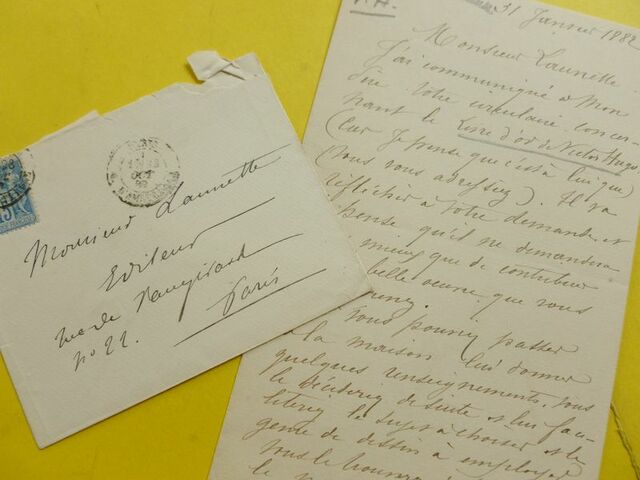 PARIS
OCT
Monsieur Launette
Editeur
rue de Vaugirard
no 22.
Paris
31 Janvier 1882
Monsieur Launette
J'ai communiqué à Mon
père votre circulaire concer-
nant le Livre d'or de Victor Hugo
(car je pense que c'est à lui que
vous vous adressiez). Il va
réfléchir à votre demande et
pense qu'il ne demandera
mieux que de contribuer
belle œuvre que vous
Vous pourriez passer
la maison lui donner
quelques renseignements. Vous
le décideriez de suite et lui fac-
literiez le sujet à choisir et le
genre de dessin à employer
vous le